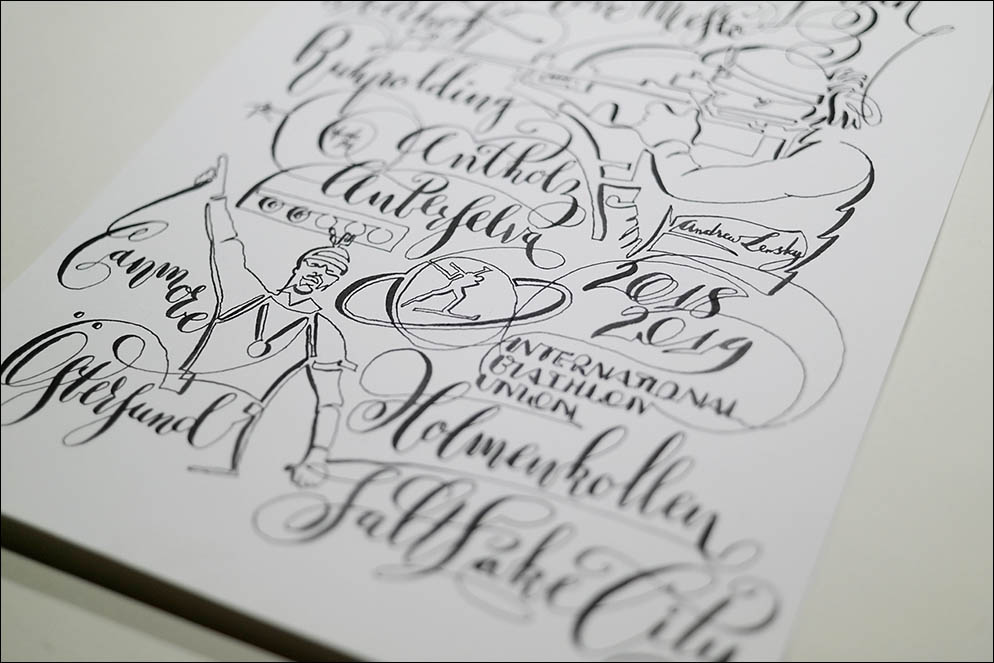 Oberhof
Nove Mesto
Ruhpolding
Antholz
Anterselva
Andrew Lensky
Canmore
2018
2019
INTERNATIONAL
BIATHLON
UNION
Östersund
Holmenkollen
Salt Lake City